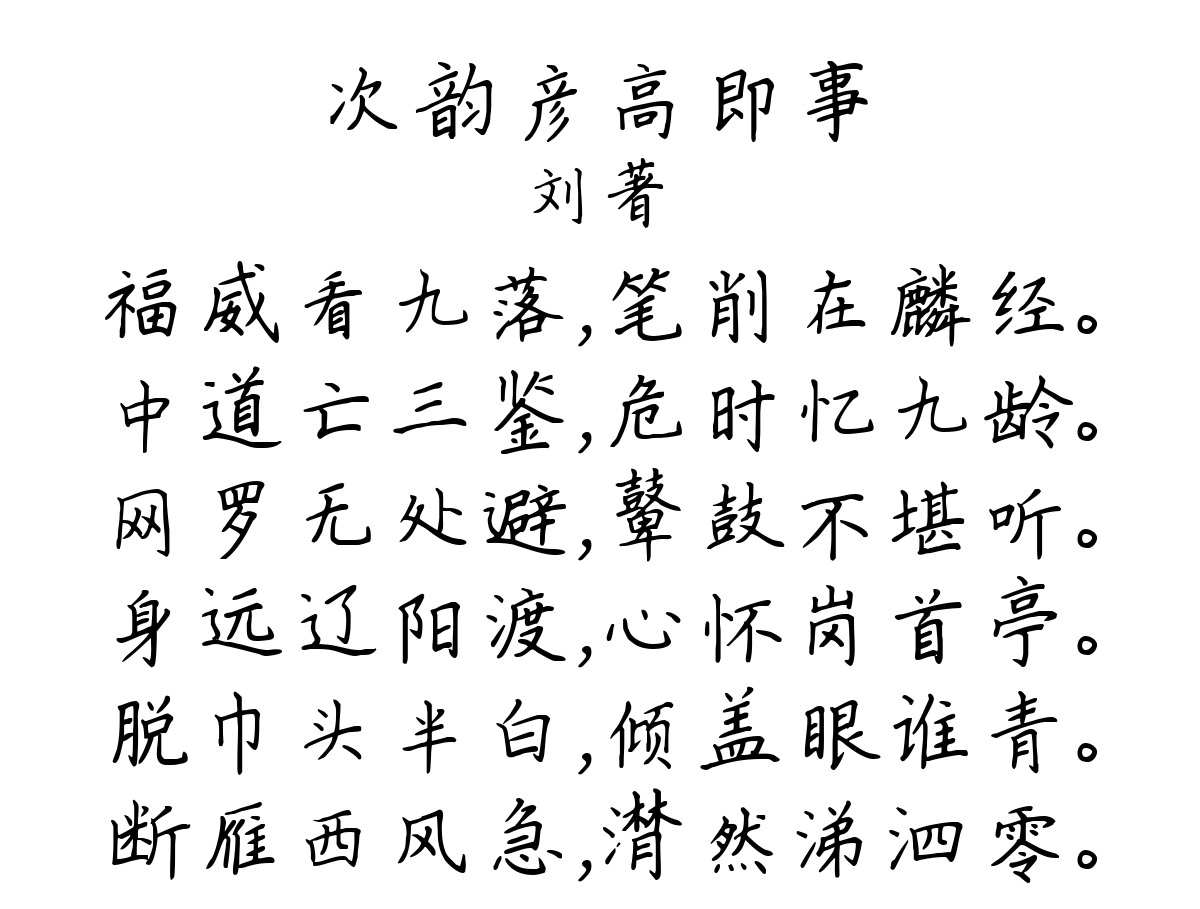 次韵彦高即事
刘著
福威看九落,笔削在麟经。
中道亡三鉴,危时忆九龄。
网罗无处避,鼙鼓不堪听。
身远辽阳渡,心怀岗首亭。
脱巾头半白,倾盖眼谁青。
断雁西风急,潸然涕泗零。